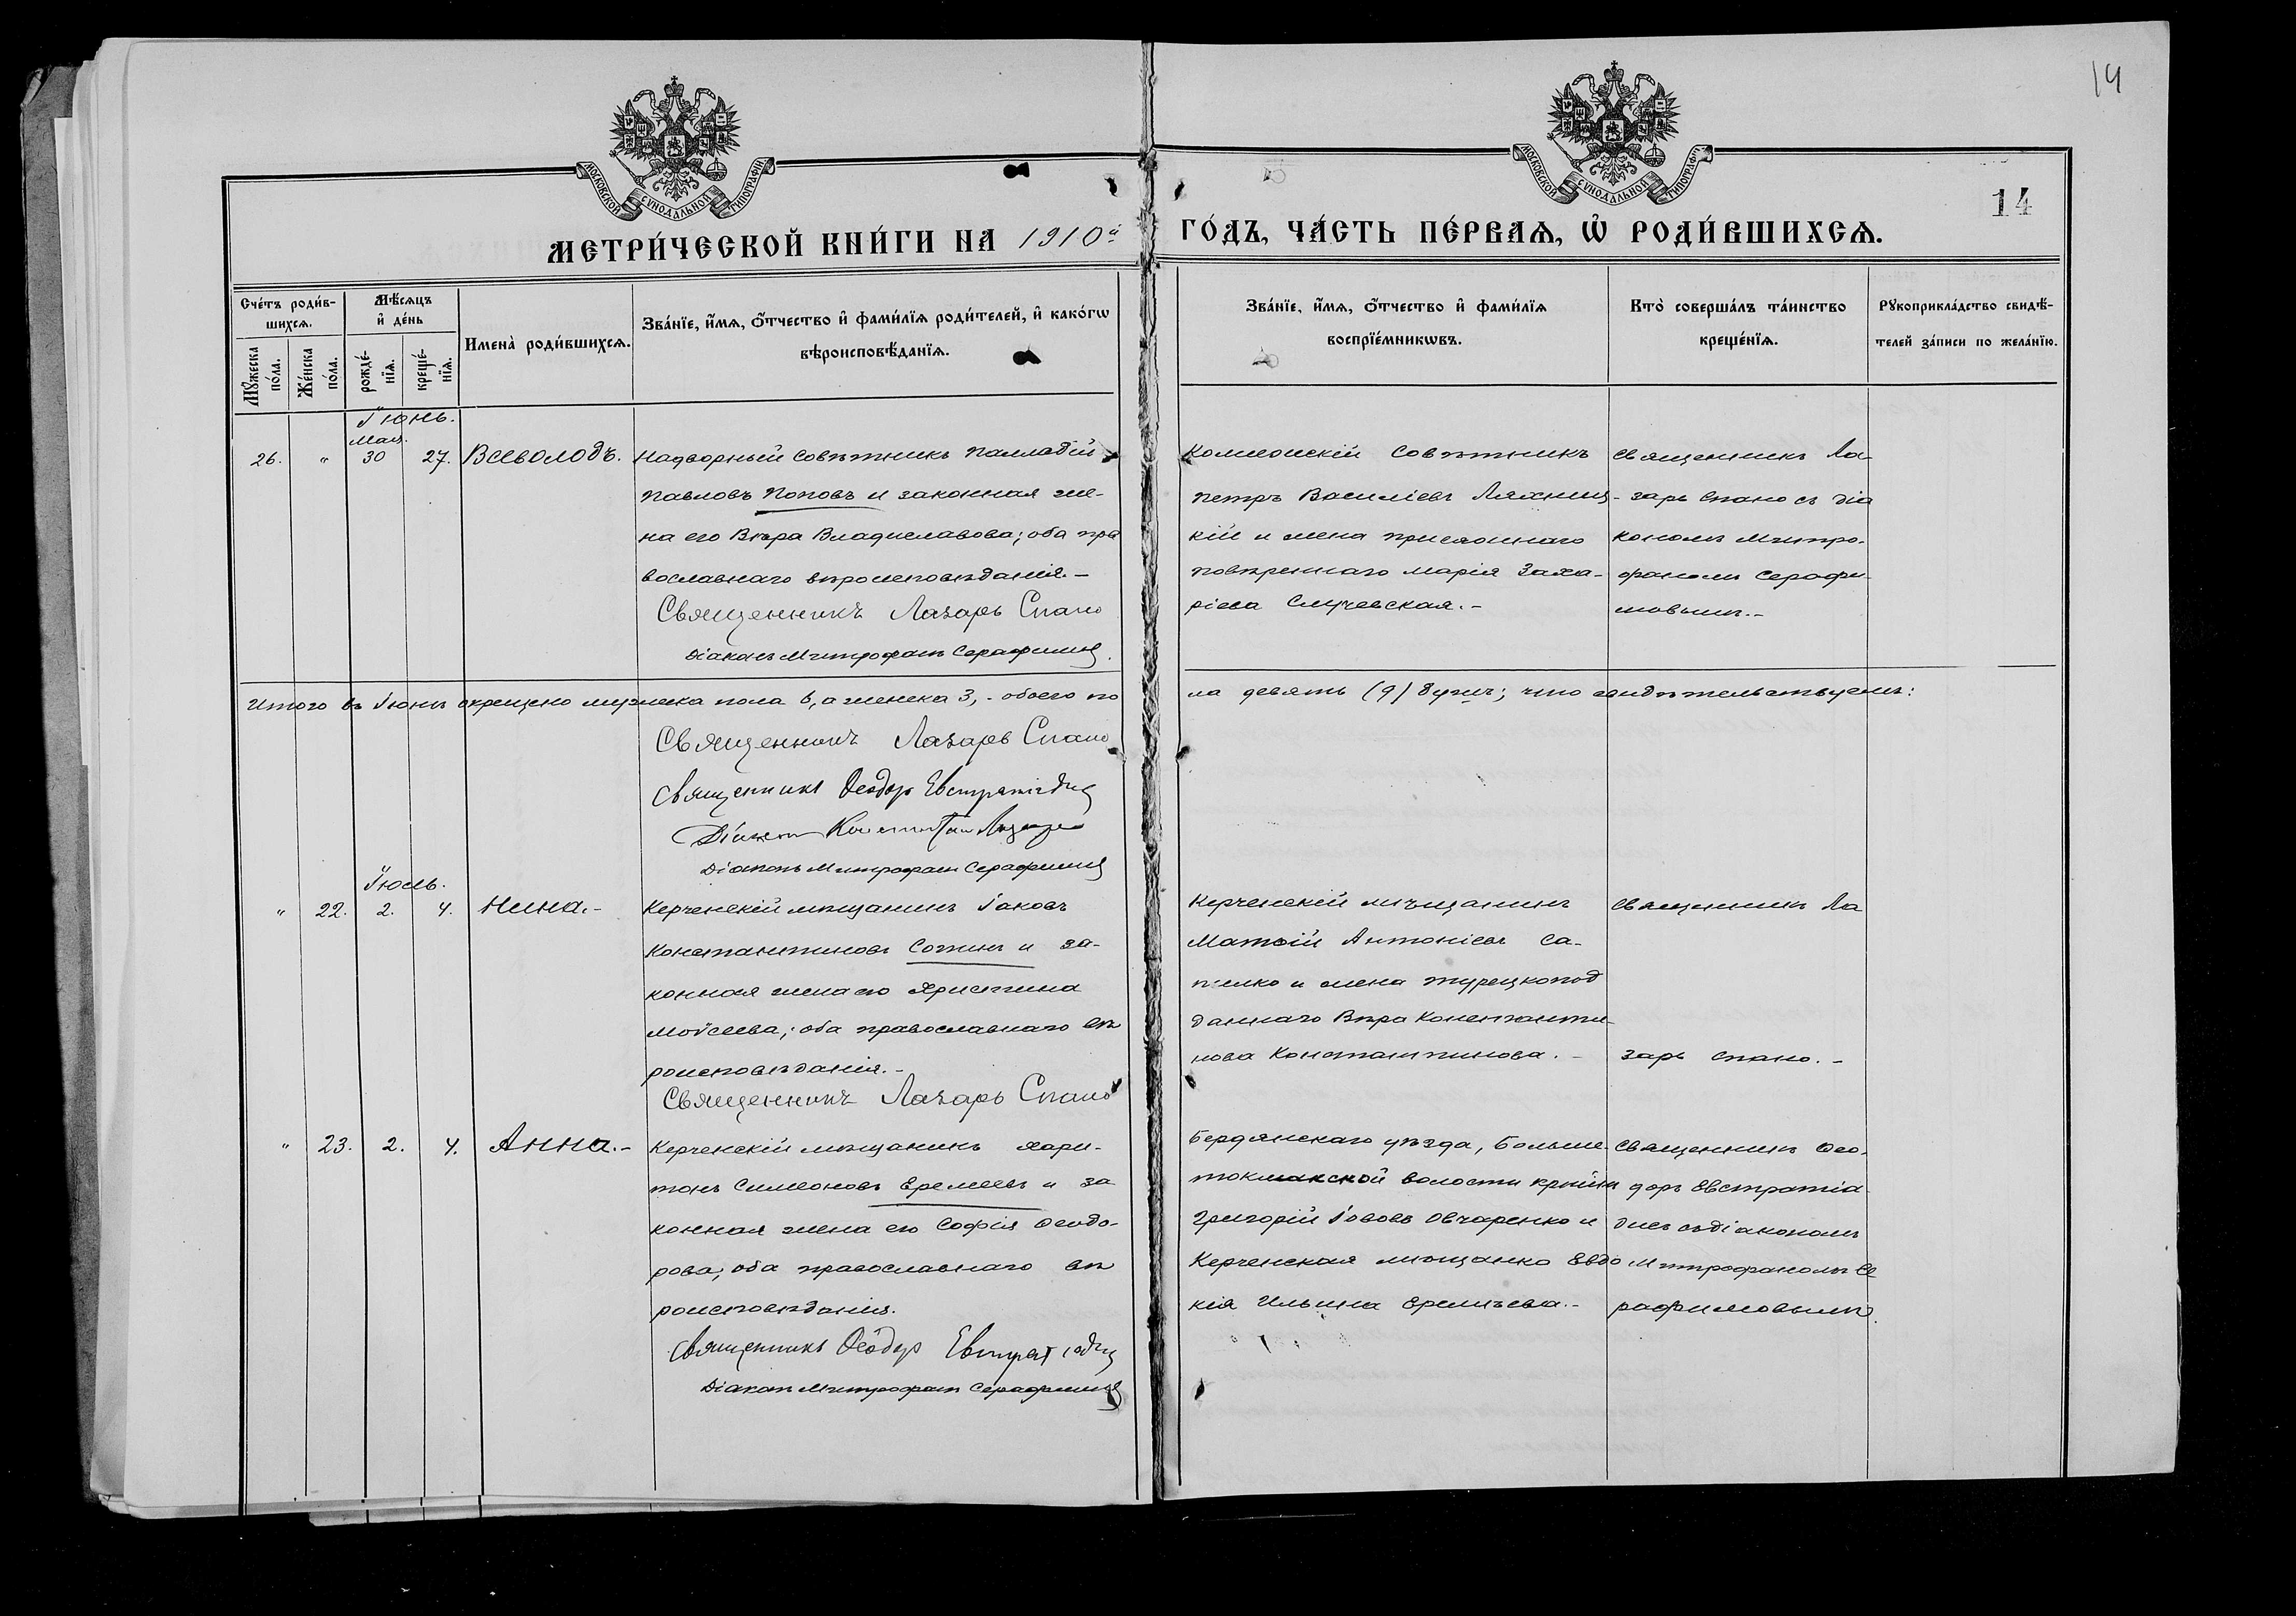 14
МОСКОВСКОЙ СѴНОДАЛЬНОЙ ТИПОГРАФІИ
МОСКОВСКОЙ СѴНОДАЛЬНОЙ ТИПОГРАФІИ
14
МЕТРИ́ЧЕСКОЙ КНИ́ГИ НА 1910й ГО́ДЪ, ЧА́СТЬ ПЕ́РВАѦ, Ѡ҆ РОДИ́ВШИХСѦ.
Сче́тъ роди́в-
шихсѧ.
Мꙋ́жеска по́ла.
Же́нска по́ла.
Мѣ́сѧцъ
и҆ де́нь
рожде́-
нїѧ.
креще́-
нїѧ.
Имена̀ роди́вшихсѧ.
Зва́нїе, и҆́мѧ, ѻ҆́тчество и҆ фами́лїѧ роди́телей, и҆ како́гѡ
вѣроисповѣ́данїѧ.
Зва́нїе, и҆́мѧ, ѻ҆́тчество и҆ фами́лїѧ
воспрїе́мникѡвъ.
Кто̀ соверша́лъ та́инство
креще́нїѧ.
Рꙋкоприкла́дство свидѣ́-
телей за́писи по жела́нїю.
Іюнь.
Мая.
26. " 30 27. Всеволодъ.
Надворный Совѣтникъ Палладій
Павловъ Поповъ и законная же-
на его Вѣра Владиславова; оба пра
вославнаго вѣроисповѣданія.-
Священникъ Лазарь Спано
Діаконъ Митрофанъ Серафимов
Совѣтникъ
Петръ Василіевъ
кій и жена присяжнаго
повѣреннаго Марія Заха-
ріева Случевская.-
Священникъ Ла-
зарь Спано съ діа
кономъ Митро-
фаномъ Серафи-
мовымъ.-
Итого въ Іюнѣ окрещено мужеска пола 6, а женска 3,- обоего по
ла девять (9) душъ; что свидѣтельствуемъ:
Священникъ Лазарь Спано
Священникъ Ѳеодоръ Евстратіадис
Діаконъ
Діаконъ Митрофанъ Серафимов
Іюль.
" 22. 2. 4. Нина.-
Керченскій мѣщанинъ Іаковъ
Константиновъ Сотинъ и за-
конная жена его Христина
Мойсеева; оба православнаго вѣ
роисповѣданія.-
Священникъ Лазарь Спано
Керченскій мѣщанинъ
Матѳій Антоніевъ Са-
и жена турецкопод
даннаго Вѣра Константи-
нова Константинова.-
Священникъ Ла
зарь Спано.-
" 23. 2. 4. Анна.-
Керченскій мѣщанинъ Хари-
тонъ Симеоновъ Еремеевъ и за
конная жена его Софія Ѳеодо-
рова; оба православнаго вѣ
роисповѣданія.
Священникъ Ѳеодоръ Евстратіадис
Діаконъ Митрофанъ Серафимов
Бердянскаго уѣзда, Больше-
токмакской волости
Григорій Іововъ Овчаренко и
Керченская мѣщанка Евдо
кія Ильина Еремѣева.-
Священникъ Ѳео-
доръ Евстратіа-
дисъ съ діакономъ
Митрофаномъ Се
рафимовымъ.